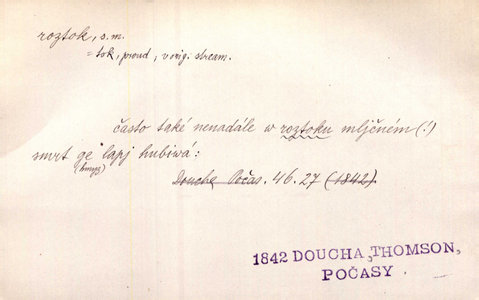 roztok, s.m.
= tok, proud, v orig. stream.
často také nenadále w roztoku mljčném (!)
smrt ge lapj hubiwá:
(hmyz)
Doucha Počas. 46.27 (1842).
1842 DOUCHA, THOMSON,
POČASY